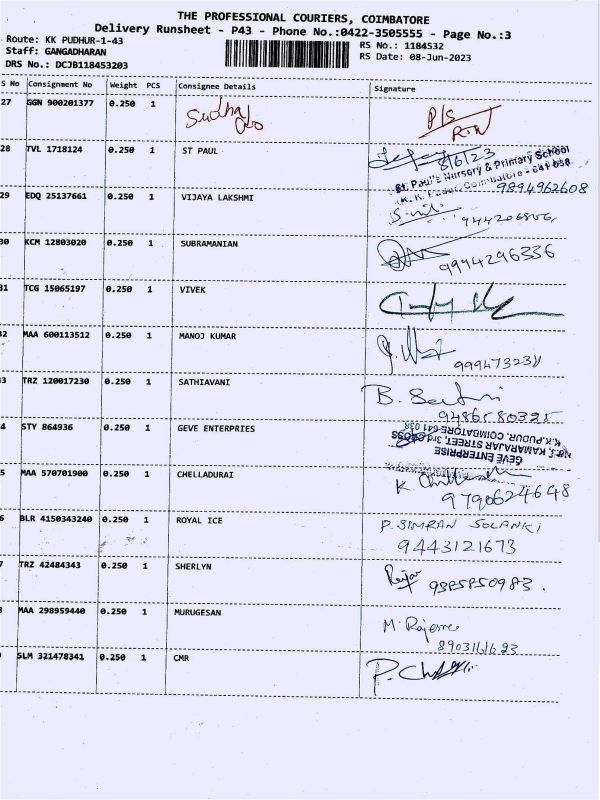 THE PROFESSIONAL COURIERS, COIMBATORE
Delivery Runsheet - P43 - Phone No.:0422-3505555 - Page No.:3
Route: KK PUDHUR-1-43
RS No.: 1184532
Staff: GANGADHARAN
RS Date: 08-Jun-2023
DRS No.: DCJB118453203
S No Consignment No Weight PCS Consignee Details Signature
27 GGN 900201377 0.250 1
28 TVL 1718124 0.250 1 ST PAUL 8/6/23
St. Paul's Nursery & Primary School
K. K. Pudur, Coimbatore - 641 038
9894962608
29 EDQ 25137661 0.250 1 VIJAYA LAKSHMI
30 KCM 12803020 0.250 1 SUBRAMANIAN 9994296336
31 TCG 15065197 0.250 1 VIVEK
32 MAA 600113512 0.250 1 MANOJ KUMAR
3 TRZ 120017230 0.250 1 SATHIAVANI
4 STY 864936 0.250 1 GEVE ENTERPRIES
GEVE ENTERPRISE
KAMARAJAR STREET, 3rd
K.K.PUDUR, COIMBATORE-641 038
5 MAA 570701900 0.250 1 CHELLADURAI 9790624648
6 BLR 4150343240 0.250 1 ROYAL ICE P. SIMRAN SOLANKI
9443121673
7 TRZ 42484343 0.250 1 SHERLYN
MAA 298959440 0.250 1 MURUGESAN M. Rajesree
SLM 321478341 0.250 1 CMR